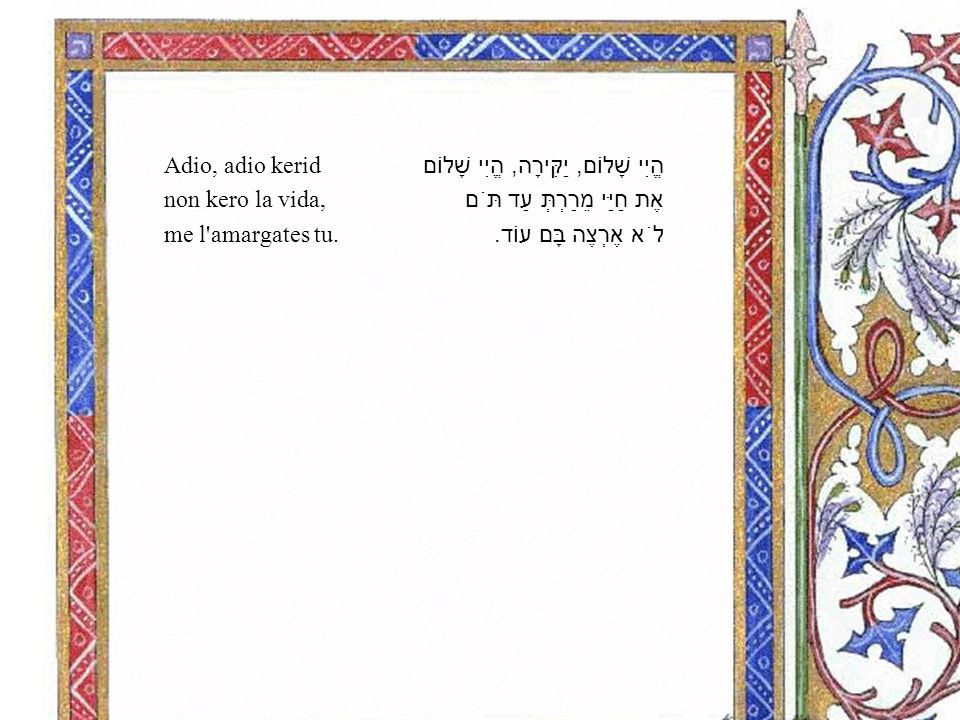 Adio, adio kerid
non kero la vida,
me l'amargates tu.
הֱיִי שָׁלוֹם, יַקִּירָה, הֱיִי שָׁלוֹם
אֶת חַיַּי מֵרַרְתְּ עַד תֹּם
לֹא אֶרְצֶה בָּם עוֹד.